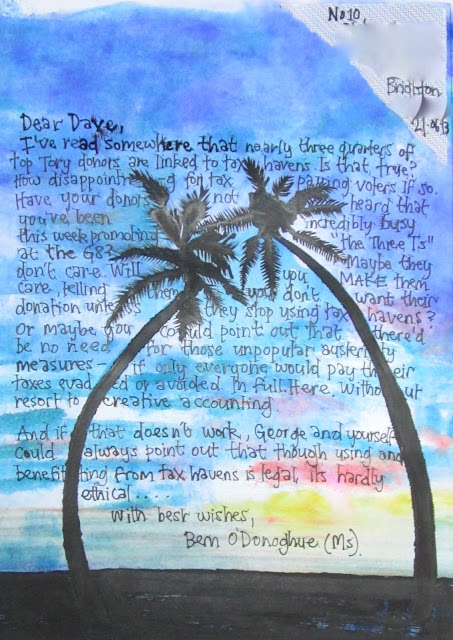 No10,
21.06.13
Dear Dave,
I've read somewhere that nearly three quarters of
top Tory donors are linked to tax havens. Is that true?
How disappointing for tax paying voters if so.
Have your donors not heard that
you've been incredibly busy
this week promoting "the Three Ts"
at the G8? Maybe they
don't care. Will you MAKE them
care, telling them you don't want their
donation unless they stop using tax havens?
Or maybe you could point out that there'd
be no need for those unpopular austerity
measures - if only everyone would pay their
taxes evaded or avoided. In full. Here. Without
resort to creative accounting.
And if that doesn't work, George and yourself
could always point out that though using and
benefitting from tax havens is legal, its hardly
ethical.....
With best wishes,
Bem O'Donoghue (Ms).